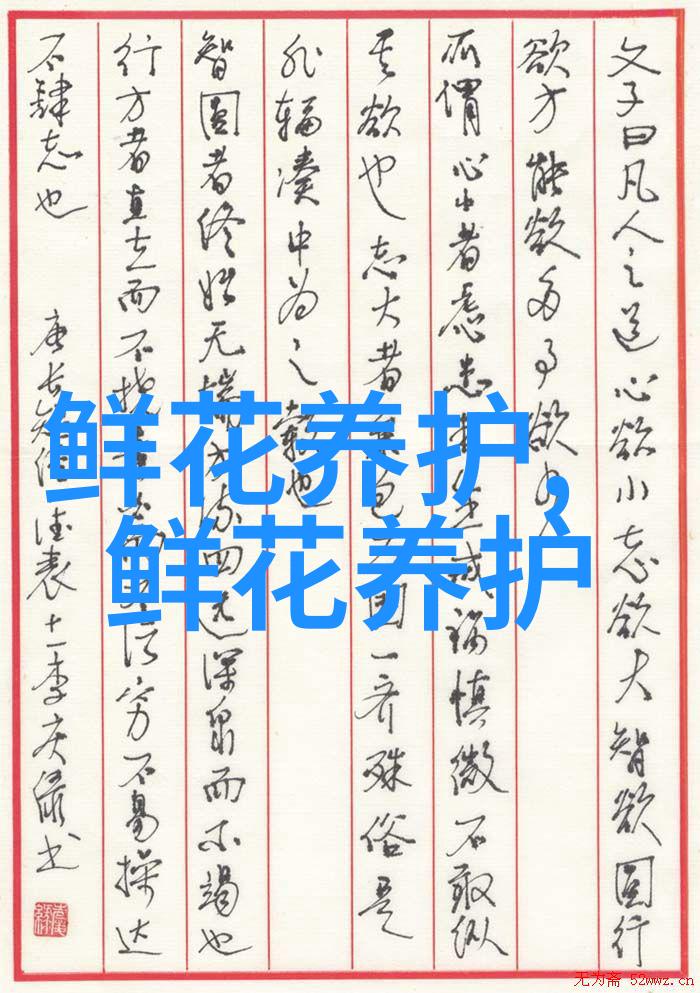 文子曰凡人之道心欲小志欲大智欲圆行
欲方能欲多事欲
所谓心小者虑患未生戒祸慎微不敢纵
其欲也志大者兼包万国一齐殊俗是
非辐凑中为之毂也
智圆者终始无端方流四远深泉而不竭也
行方者直立而不挠素污穷不易操达
不肆志也
唐长短经德表十一李庆绿书
鲜花养护,
鲜花养护
无为斋 52wwz.cn